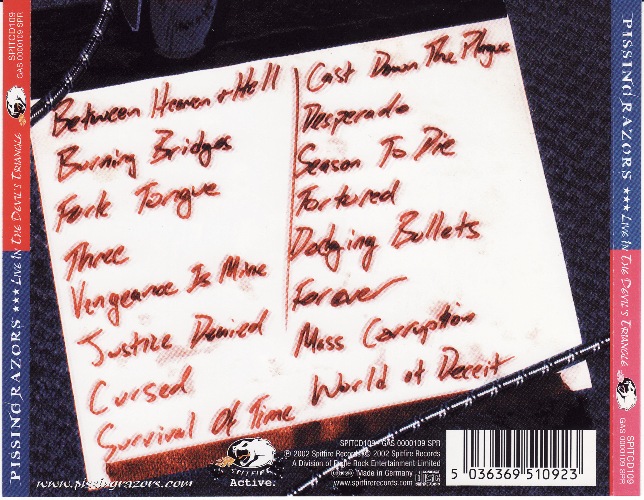 SPITCD109
GAS 0000109 SPR
PISSING RAZORS *** LIVE IN THE DEVIL'S TRIANGLE
Between Heaven + Hell
Burning Bridges
Fork Tongue
Three
Vengeance Is Mine
Justice Denied
Cursed
Survival Of Time
Cast Down The Plague
Desperado
Season To Die
Tortured
Dodging Bullets
Forever
Mass Corruption
World of Deceit
www.pissingrazors.com
SPITFIRE
Active.
SPITCD109 GAS 0000109 SPR
℗ 2002 Spitfire Records © 2002 Spitfire Records
A Division of Eagle Rock Entertainment Limited
Made in Germany
www.spitfirerecords.com
5 036369 510923
PISSING RAZORS *** LIVE IN THE DEVIL'S TRIANGLE
SPITCD109
GAS 0000109 SPR